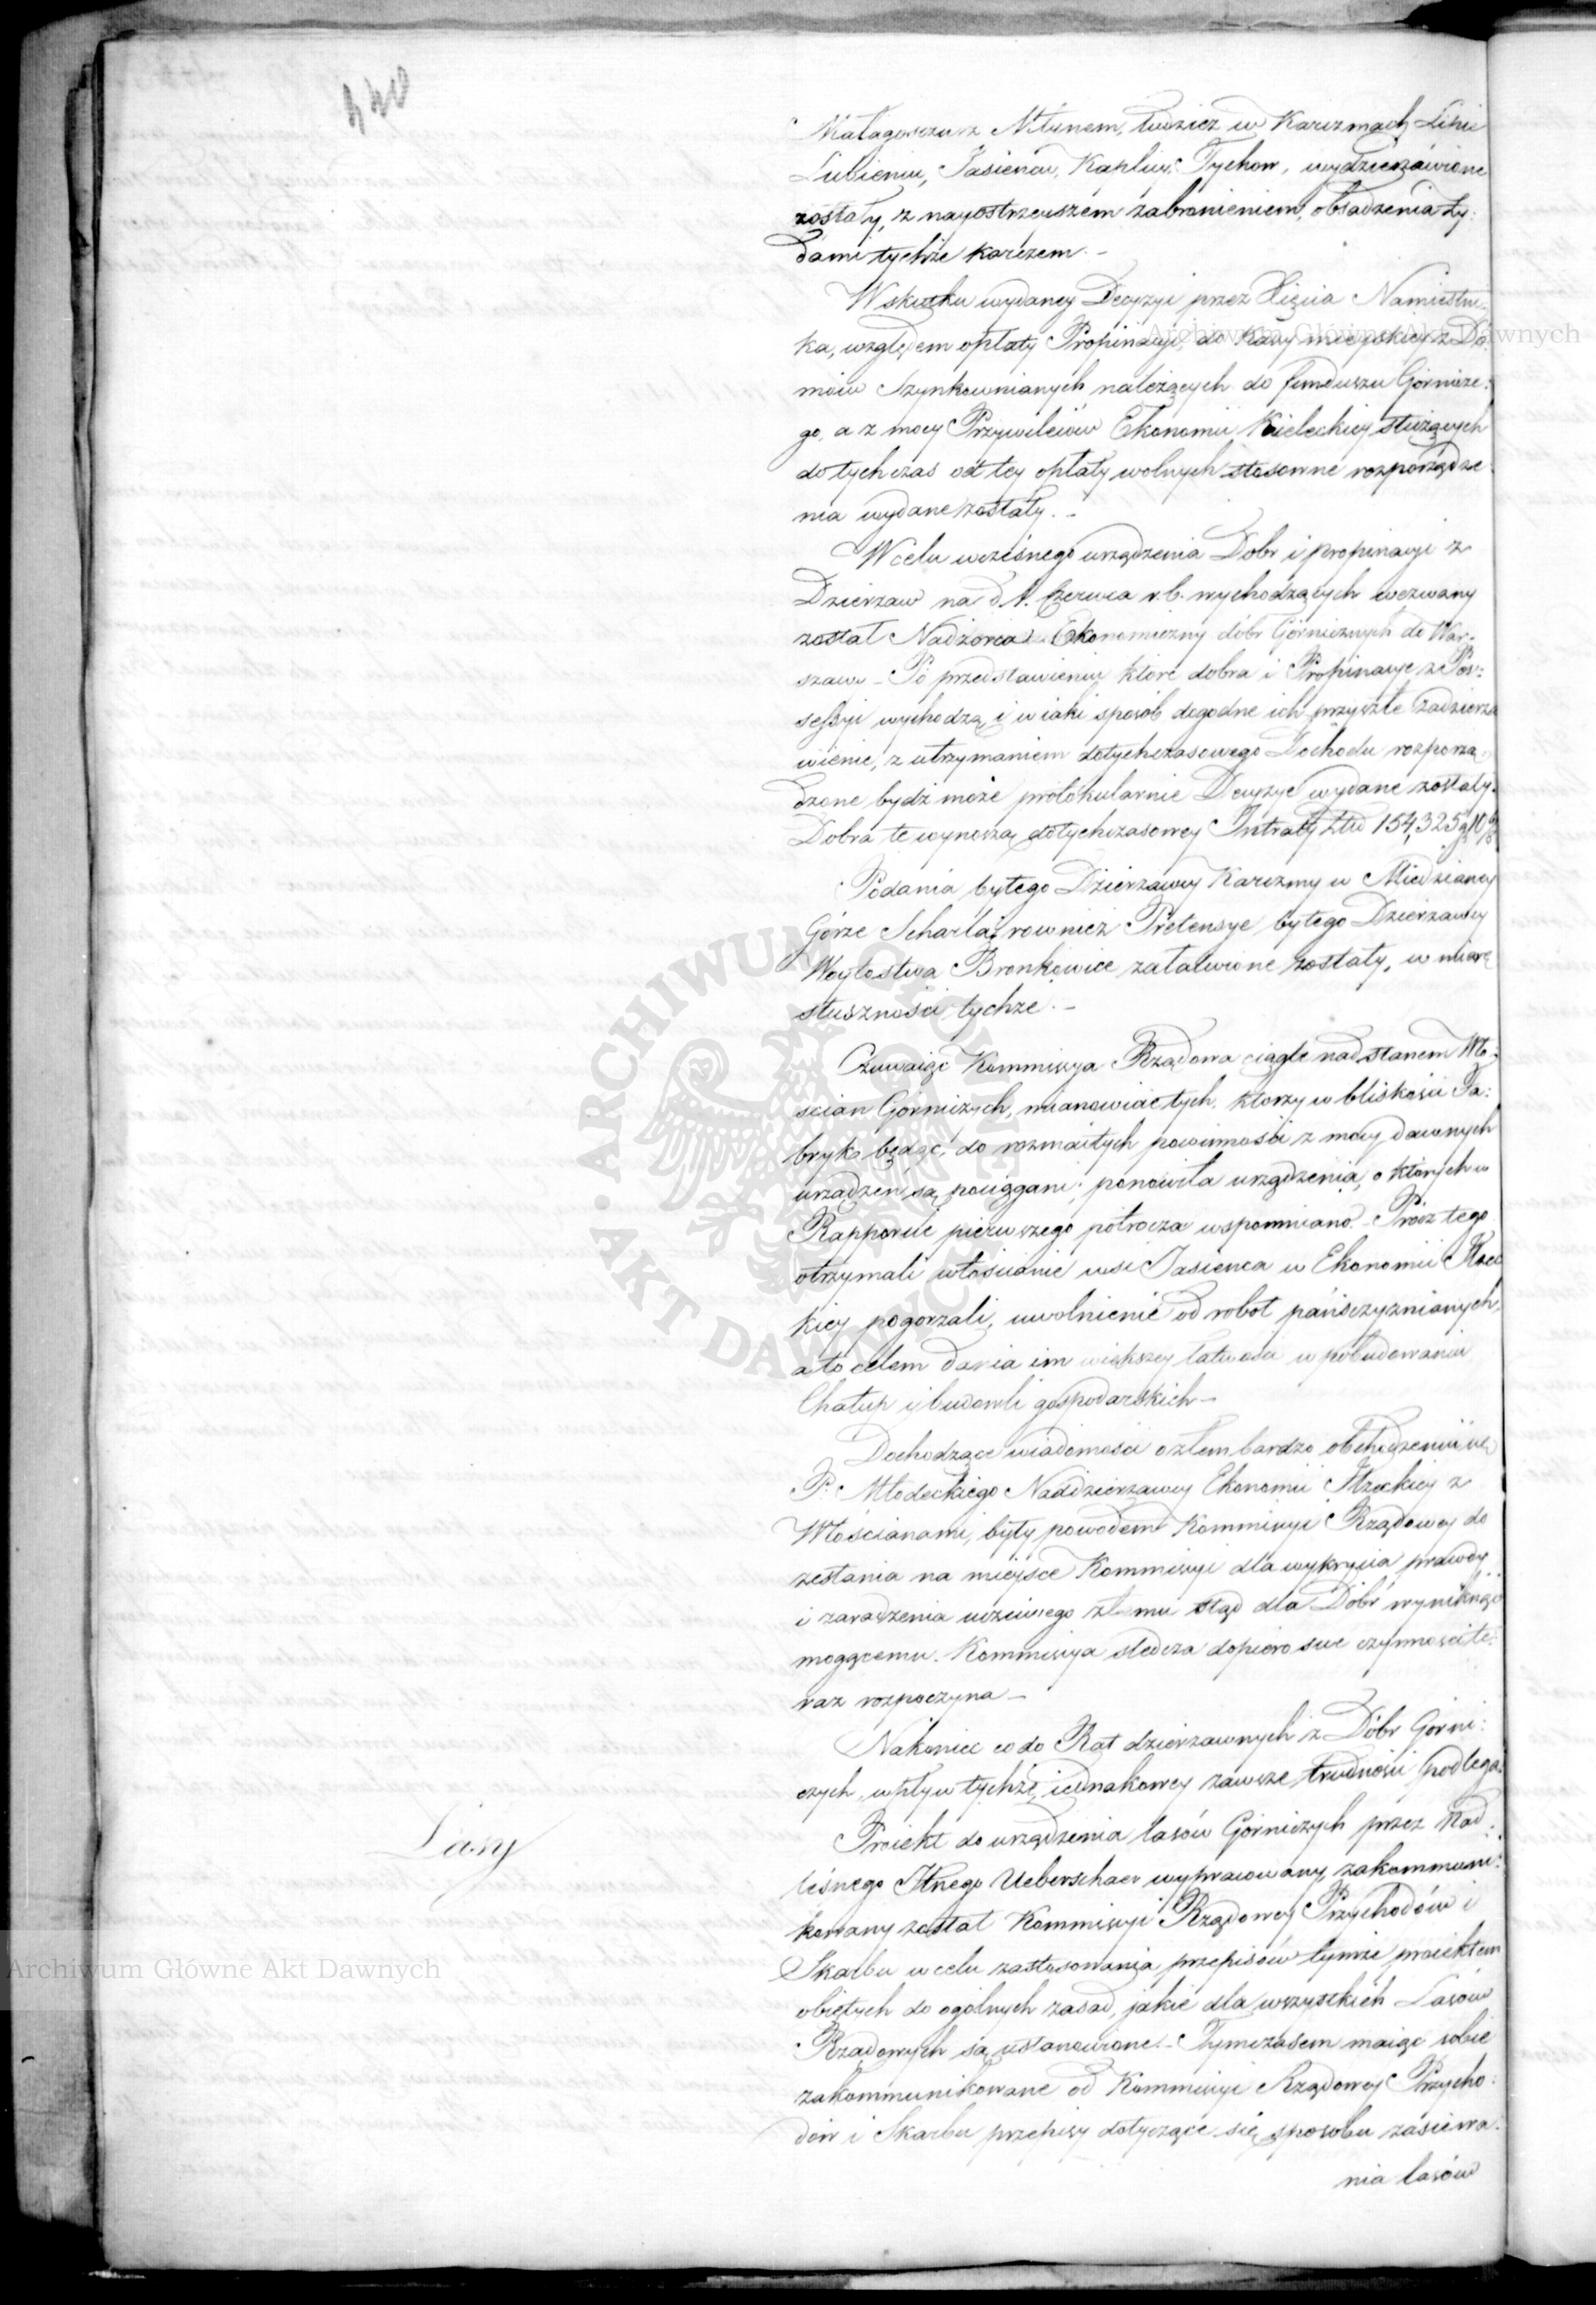 440
Małagoszcz z Młynem, tudzież w Karczmach Linie
Lubieniu, Jasieniu, Kaplicy, Tychow, wydzierżawione
zostały, z nayostrzeyszém zabronieniem, obsadzenia ży:
dami tychże karczem. –
W skutku wydaney Decyzyi przez Xięcia Namiestni-
ka, względem opłaty Propinacyi, do Kassy mieyskiey z Do
mów Szynkownianych należących do funduszu Gornicze:
go, a z mocy Przywileiów Ekonomii Kieleckiey służących
dotychczas od tey opłaty wolnych stosowne rozporządze
nia wydane zostały. –
W celu wczesnego urządzenia Dobr i propinacyi z
Dzierzaw na d 1. Czerwca r.b. wychodzących wezwany
został Nadzorca Ekonomiczny dóbr Górniczych do War-
szawy – Po przedstawieniu które dobra i Propinacye z Pos:
sessyi wychodzą, i w iaki sposób dogodne ich przyszłe zadzierża
wienie, z utrzymaniem dotychczasowego Dochodu rozporzą
dzone bydź może protokularnie Decyzye wydane zostały.
Dobra te wynoszą dotychczasowey Intraty Złtd 154,325 g 10
Podania byłego Dzierzawcy Karczmy w Miedzianey
Górze Scharla, rownież Pretensye byłego Dzierzawcy
Woytostwa Bronkowice załatwione zostały, w miarę
słuszności tychże. –
Czuwaiąc Kommissya Rządowa ciągle nad stanem Wło:
scian Górniczych, mianowicie tych, ktorzy w bliskości Fa:
bryk będąc, do rozmaitych powinności z mocy dawnych
urządzen są pociągani; ponowiła urządzenia, o których w
Rapporcie pierwszego półrocza wspomniano. – Prócz tego
otrzymali włościanie wsi Jasienca w Ekonomii Rzec
kiey pogorzali, uwolnienie od robot pańszczyznianych,
a to celem dania im większey łatwości w pobudowaniu
Chałup i budowli gospodarskich –
Dochodzące wiadomości o złem bardzo obchodzeniu się
P. Młodeckiego Naddzierzawcy Ekonomii Iłzeckiey z
Włościanami, były powodem Kommissyi Rządowey do
zesłania na mieysce Kommissyi dla wykrycia prawdy
i zaradzenia wszelkiego złemu stąd dla Dóbr wyniknąć
mogącemu. Kommissya sledcza dopiero swe czynności te:
raz rozpoczyna –
Nakoniec co do Rat dzierzawnych z Dóbr Górni:
czych, wpływ tychże, iednakowey zawsze trudności podlega.
Lasy
Proiekt do urządzenia lasów Górniczych przez Nad:
leśnego Jłnego Ueberschaer wypracowany, zakommuni:
kowany został Kommissyi Rządowey Przychodów i
Skarbu w celu zastosowania przepisów tymże proiektem
obiętych do ogólnych zasad, jakie dla wszystkich Lasów
Rządowych są ustanowione. – Tymczasem maiąc sobie
zakommunikowane od Kommissyi Rządowey Przycho:
dów i Skarbu przepisy dotyczące się sposobu zasiewa:
nia lasów
Archiwum Główne Akt Dawnych
Archiwum Główne Akt Dawnych
ARCHIWUM GŁÓWNE AKT DAWNYCH